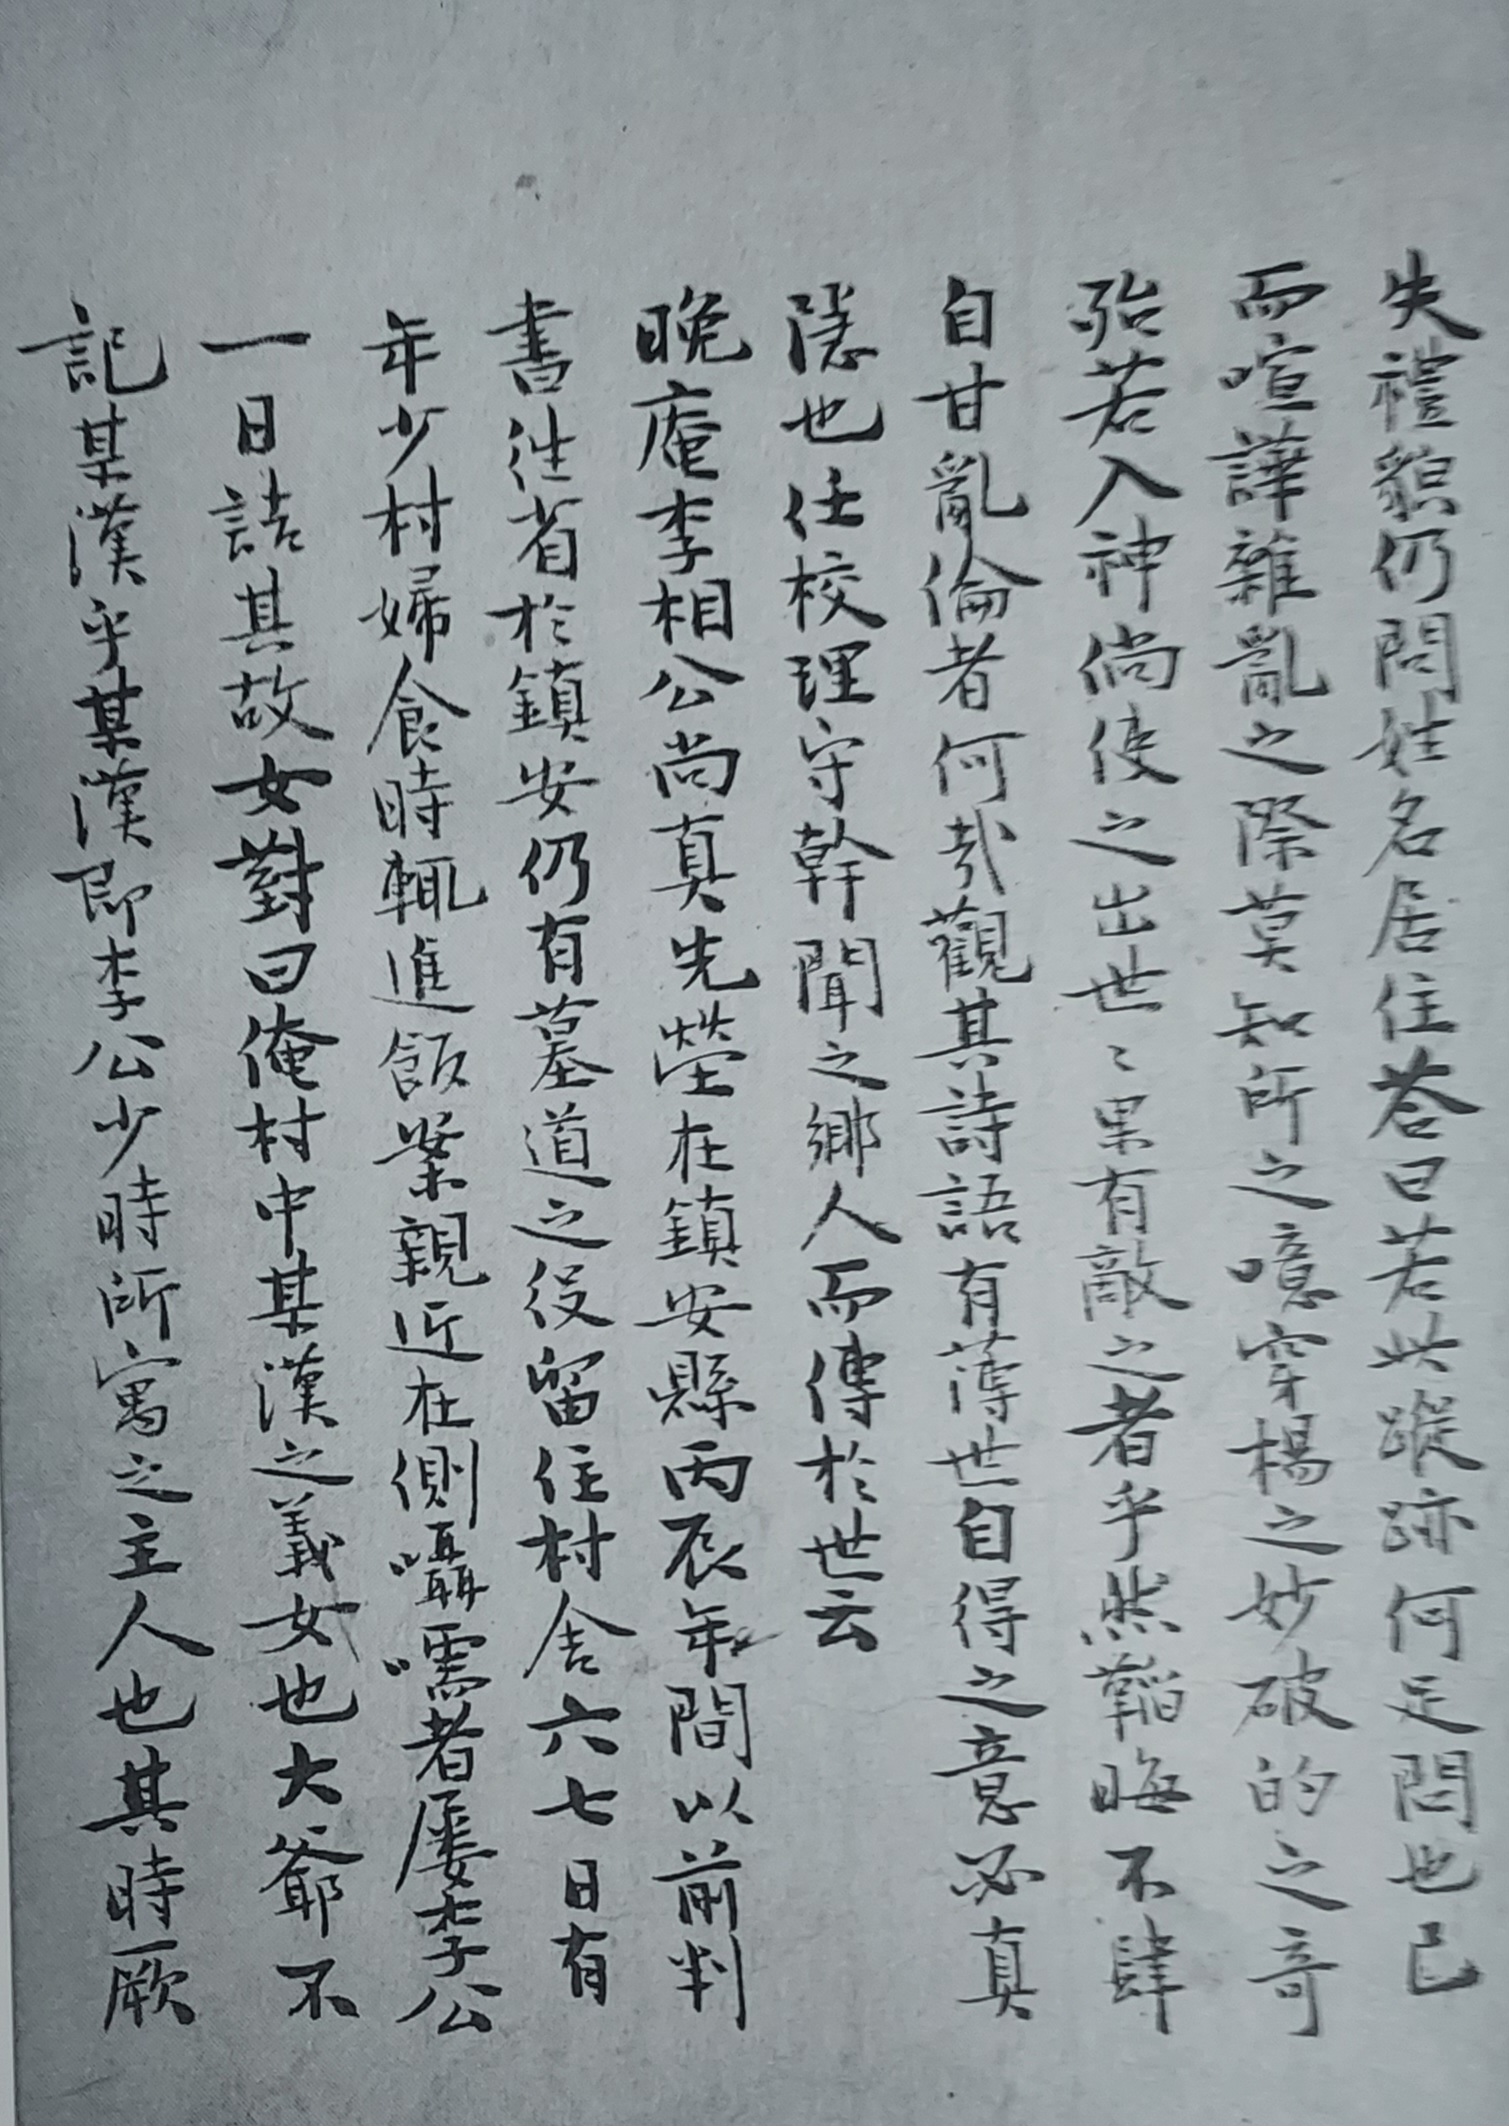 失禮貌仍問姓名居住答曰若此蹤跡何足問也已
而喧譁雜亂之際莫知所之噫穿楊之妙破的之奇
殆若入神倘使之出世〻果有敵之者乎然韜晦不肆
自甘亂倫者何哉觀其詩語有薄世自得之意必真
隱也任校理守幹聞之鄉人而傳於世云
晚庵李相公尚真先塋在鎮安縣丙辰年間以前判
書往省於鎮安仍有墓道之役留住村舍六七日有
年少村婦食時輒進飯案親近在側囁嚅者屢李公
一日詰其故女對曰俺村中某漢之義女也大爺不
記某漢乎某漢即李公少時所寓之主人也其時厥